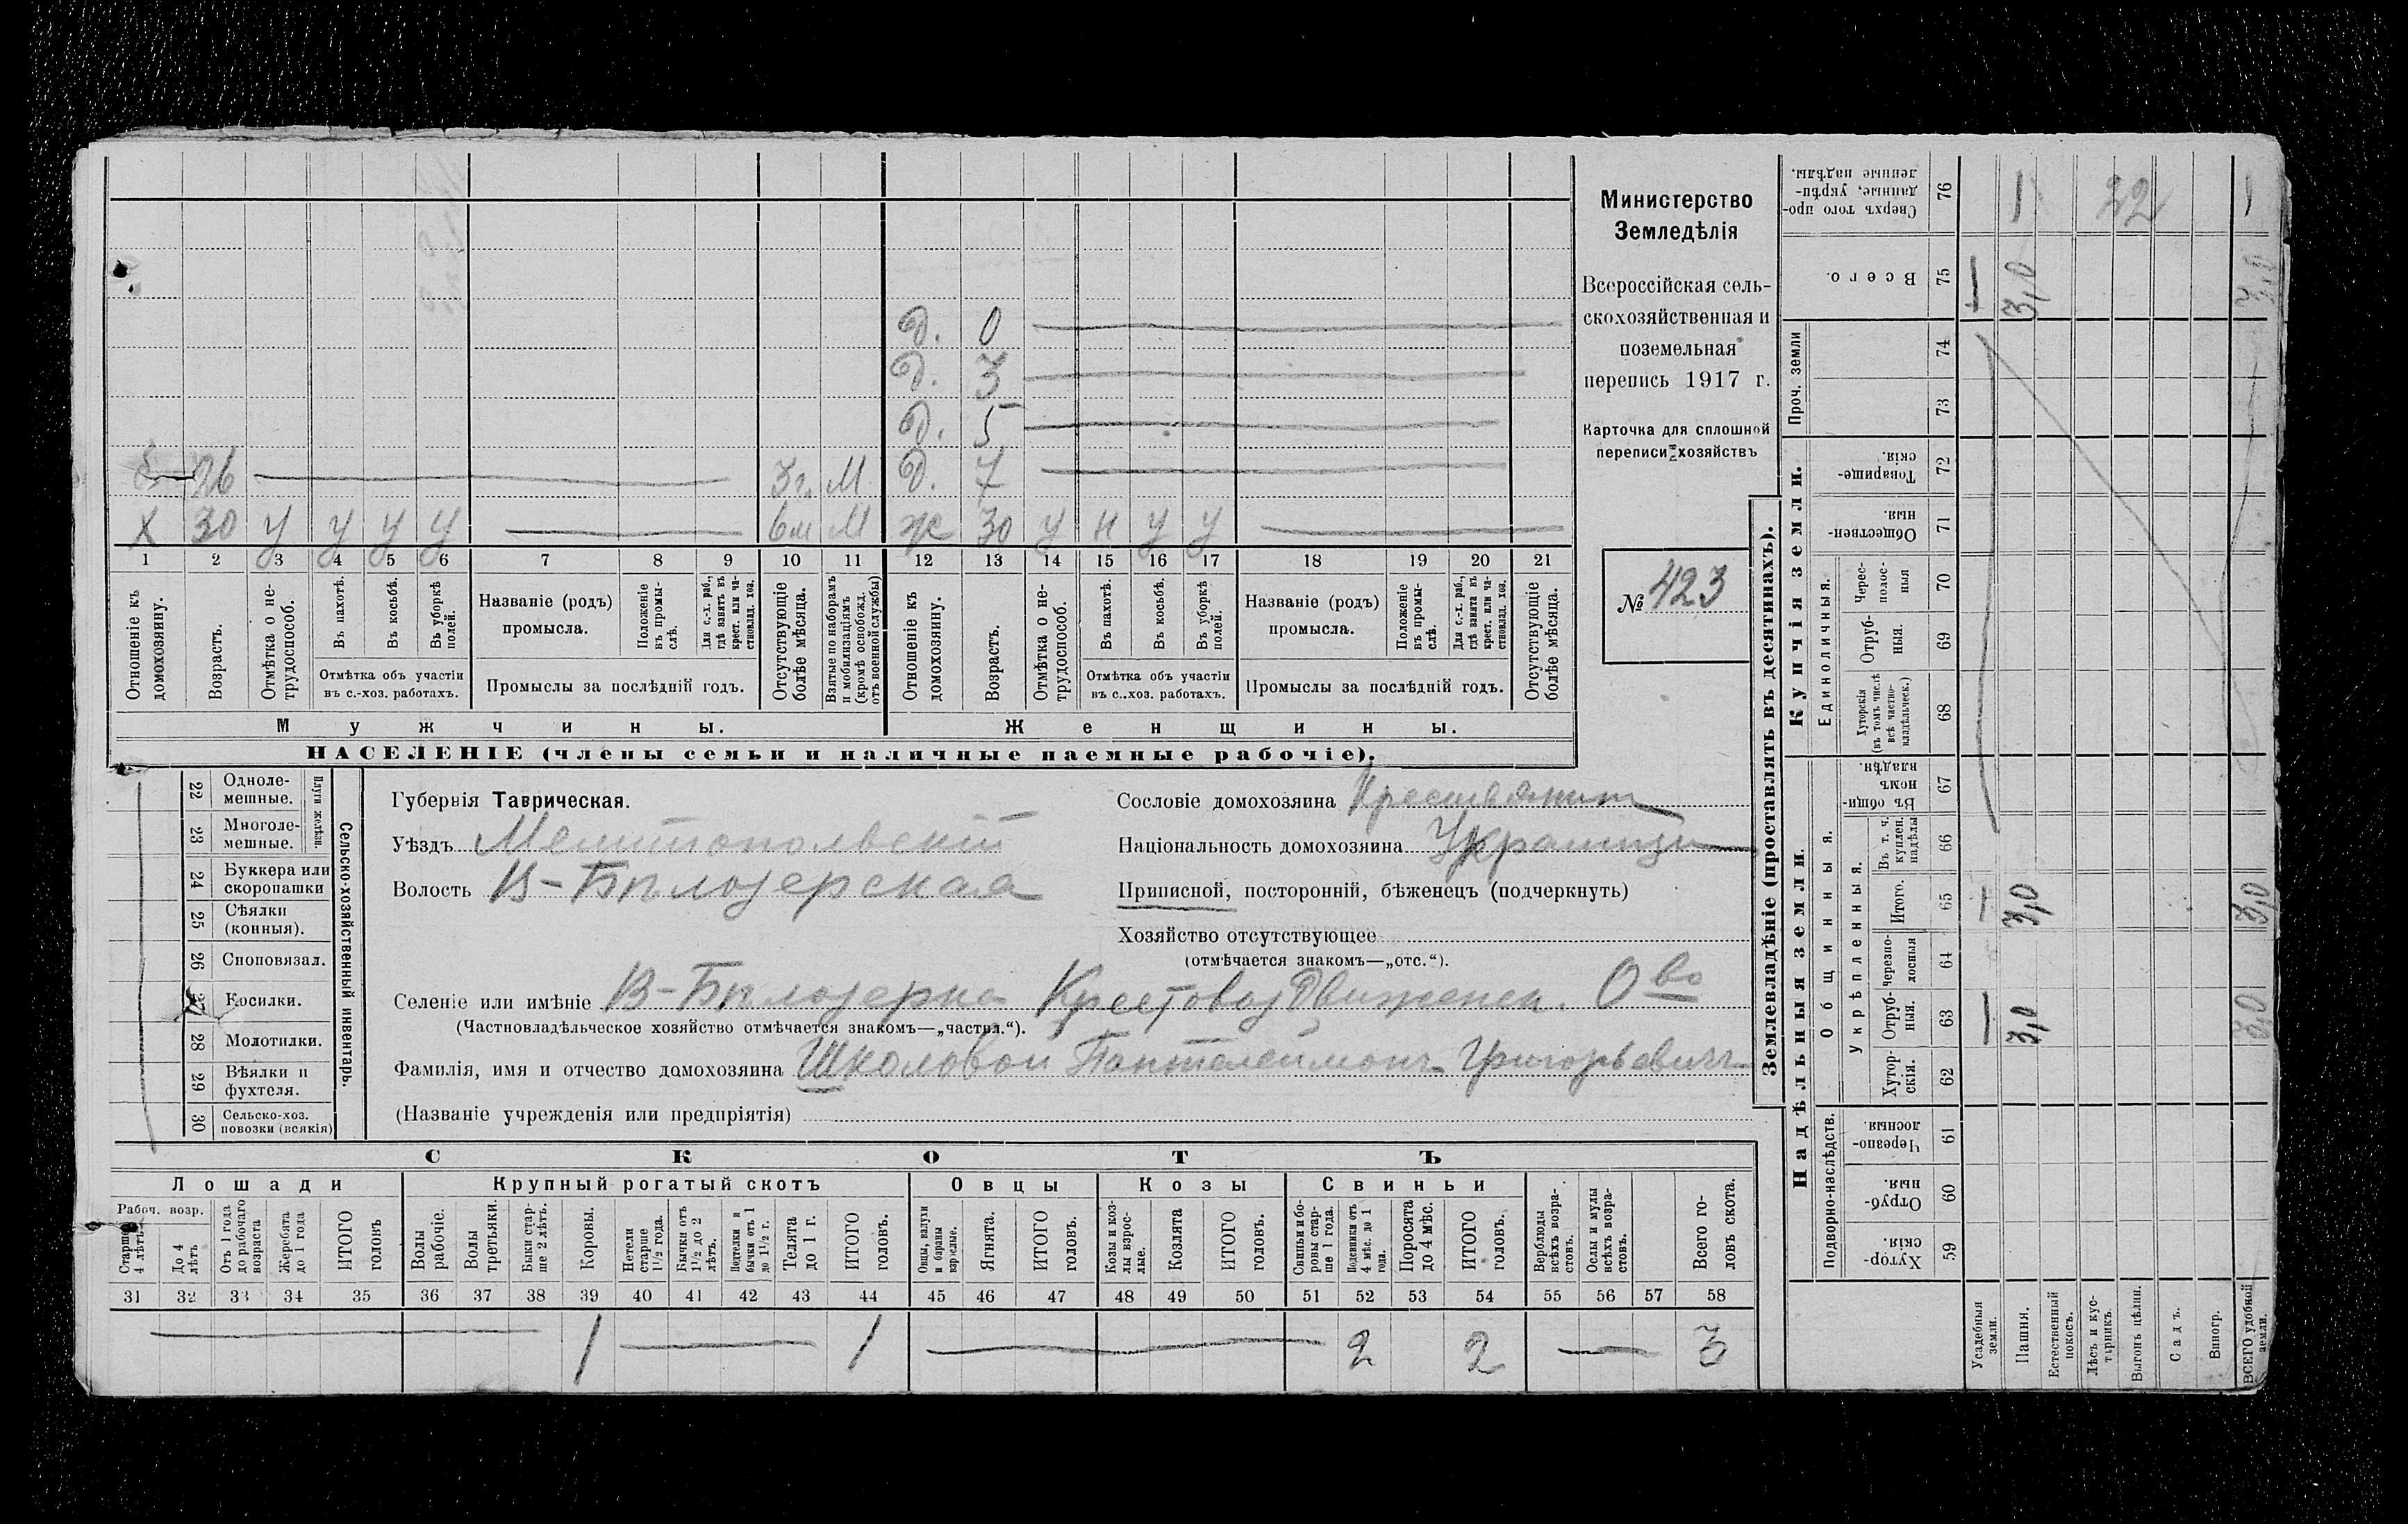 д. 0
д. 3
д. 5
26 3г. М д. 7
х 30 у у у у 6м М ж 30 у н у у
1 2 3 4 5 6 7 8 9 10 11 12 13 14 15 16 17 18 19 20 21
Отношеніе къ домохозяину.
Возрастъ.
Отмѣтка о не-трудоспособ.
Въ пахотѣ.
Въ косьбѣ.
Въ уборкѣ полей.
Отмѣтка объ участіи
въ с.-хоз. работахъ.
Названіе (родъ)
промысла.
Положеніе въ промы-слѣ.
Для с.-х. раб., гдѣ занятъ въ крест. или ча-стновлад. хоз.
Промыслы за послѣдній годъ.
Отсутствующіе болѣе мѣсяца.
Взятые по наборамъ и мобилизаціямъ (кромѣ освобожд. отъ военной службы)
Отношеніе къ домохозяину.
Возрастъ.
Отмѣтка о не-трудоспособ.
Въ пахотѣ.
Въ косьбѣ.
Въ уборкѣ полей.
Отмѣтка объ участіи
въ с..хоз. работахъ.
Названіе (родъ)
промысла.
Положеніе въ промы-слѣ.
Для с.-х. раб., гдѣ занята въ крест. или ча-стновлад. хоз.
Промыслы за послѣдній годъ.
Отсутствующіе болѣе мѣсяца.
Мужчины.
Женщины.
НАСЕЛЕНІЕ (члены семьи и наличные наемные рабочіе).
Министерство
Земледѣлія
Всероссійская сель-
скохозяйственная и
поземельная
перепись 1917 г.
Карточка для сплошной
переписи хозяйствъ
№ 423
22 Одноле-
мешные.
23 Многоле-
мешные.
Плуги желѣзн.
24 Буккера или
скоропашки
25 Сѣялки
(конныя).
26 Сноповязал.
27 Косилки.
28 Молотилки.
29 Вѣялки и
фухтеля.
30 Сельско-хоз.
повозки (всякія)
Сельско-хозяйственный инвентарь.
Губернія Таврическая.
Уѣздъ Мелитопольскій
Волость В-Бѣлозерская
Сословіе домохозяина Крестьянин
Національность домохозяина Украинец
Приписной, посторонній, бѣженецъ (подчеркнуть)
Хозяйство отсутствующее
(отмѣчается знакомъ—„отс.“).
Селеніе или имѣніе В-Бѣлозерка КрестовоздВиженск. Ово
(Частновладѣльческое хозяйство отмѣчается знакомъ—„частвл.“).
Фамилія, имя и отчество домохозяина Школовой Пантелеимонъ Григорьевичъ
(Названіе учрежденія или предпріятія)
СКОТЪ
Лошади
Крупный рогатый скотъ
Овцы
Козы
Свиньи
Рабоч. возр.
Старше 4 лѣтъ
До 4 лѣтъ
Отъ 1 года до рабочаго возраста
Жеребята до 1 года
ИТОГО головъ
Волы рабочіе.
Волы третьяки.
Быки стар-ше 2 лѣтъ.
Коровы.
Нетели старше 1½ года.
Бычки отъ 1½ до 2 лѣтъ.
Подтелки и бычки отъ 1 до 1½ г.
Телята до 1 г.
ИТОГО головъ.
Овцы, валухи и бараны взрослые.
Ягнята.
ИТОГО головъ.
Козы и коз-лы взрос-лые.
Козлята
ИТОГО головъ.
Свиньи и бо-ровы стар-ше 1 года.
Подсвинки отъ 4 мѣс. до 1 года.
Поросята до 4 мѣс.
ИТОГО головъ.
Верблюды всѣхъ возра-стовъ.
Ослы и мулы всѣхъ возра-стовъ.
Всего го-ловъ скота.
31 32 33 34 35 36 37 38 39 40 41 42 43 44 45 46 47 48 49 50 51 52 53 54 55 56 57 58
1 1 2 2 3
Землевладѣніе (проставлять въ десятинахъ).
Надѣльныя земли.
Купчія земли.
Проч. земли
Подворно-наслѣдств.
Общинныя.
Укрѣпленныя.
Единоличныя.
Сверхъ того про-данные, укрѣп-ленные надѣлы. 76 1 22 1
Всего. 75 3,0 3,0
74
73
Товарище-скія. 72
Обществен-ныя. 71
Черес-полос-ныя 70
Отруб-ныя. 69
Хуторскія (въ томъ числѣ всѣ частно-владѣльческ.) 68
Въ общи-номъ владѣн. 67
Въ т. ч. куплен. надѣлы 66
Итого. 65 3,0 3,0
черезпо-лосныя 64
Отруб-ныя. 63 3,0 3,0
Хутор-скія. 62
Черезпо-лосныя 61
Отруб-ныя. 60
Хутор-скія. 59
Усадебныя земли.
Пашня.
Естественный покосъ.
Лѣсъ и кус-тарникъ.
Выгонъ цѣлин.
Садъ.
Виногр.
ВСЕГО удобной земли.